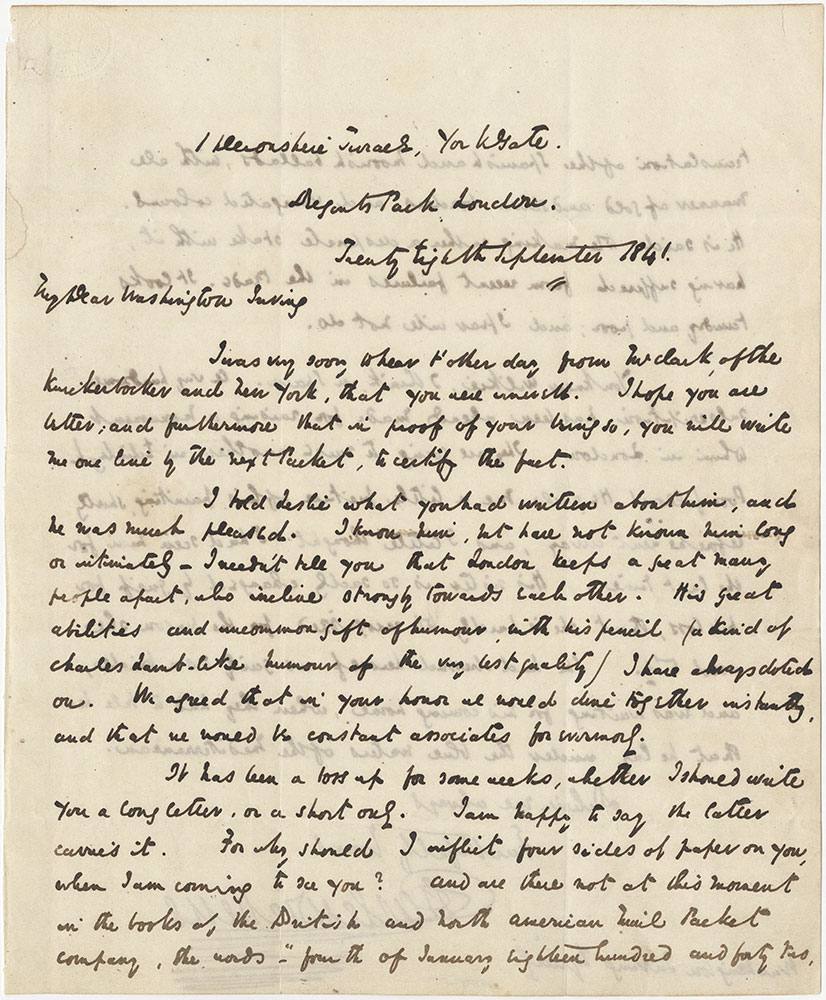 1 Devonshire Terrace, York Gate.
Regents Park London.
Twenty Eighth September 1841.
My Dear Washington Irving
I was very sorry to hear t'other day, from Mr Clark of the
Knickerbocker and New York, that you were unwell. I hope you are
better; and furthermore that in proof of your being so, you will write
me one line by the next Packet, to certify the fact.
I told Leslie what you had written about him, and
he was much pleased. I know him, but have not known him long
or intimately – I needn't tell you that London keeps a great many
people apart, who incline strongly towards each other. His great
abilities and uncommon gift of humour with his pencil (a kind of
Charles Lamb-like humour of the very best quality) I have always doted
on. We agreed that in your honor we would dine together instantly,
and that we would be constant associates for evermore.
It has been a toss up for some weeks, whether I should write
you a long letter, or a short one. I am happy to say the latter
carries it. For why should I inflict four sides of paper on you,
when I am coming to see you? and are there not at this moment
in the books of the British and North American Mail Packet
company, the words – "fourth of January eighteen hundred and forty two,